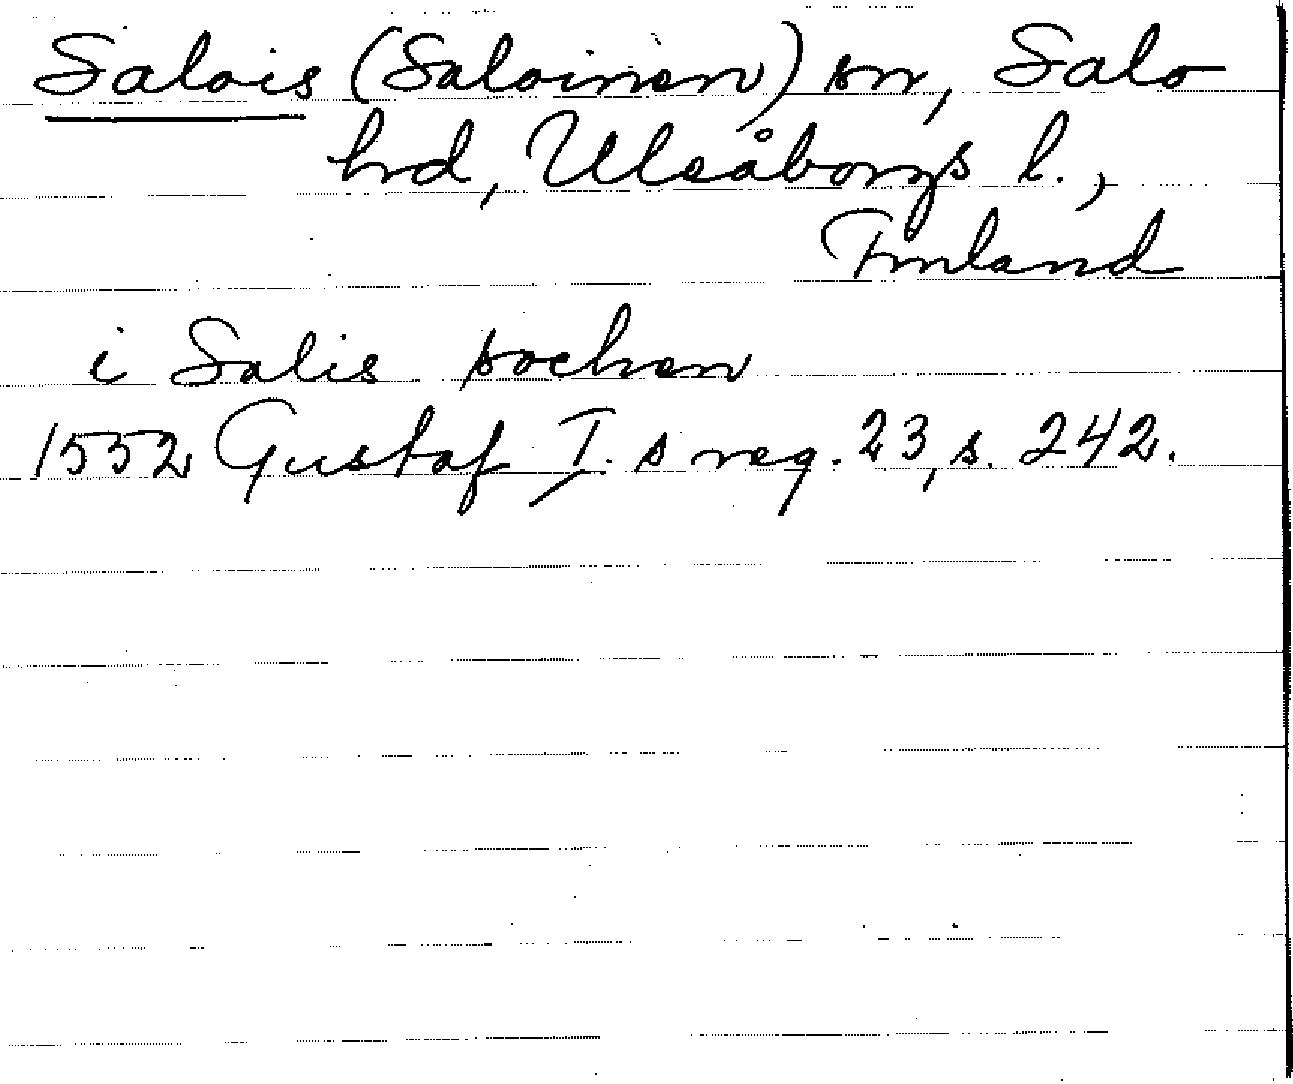 Salois (Saloinen) sn, Salo
hrd, Uleåborgs l.,
Finland
i Salis sochen
1552 Gustaf I. s reg. 23, s. 242.